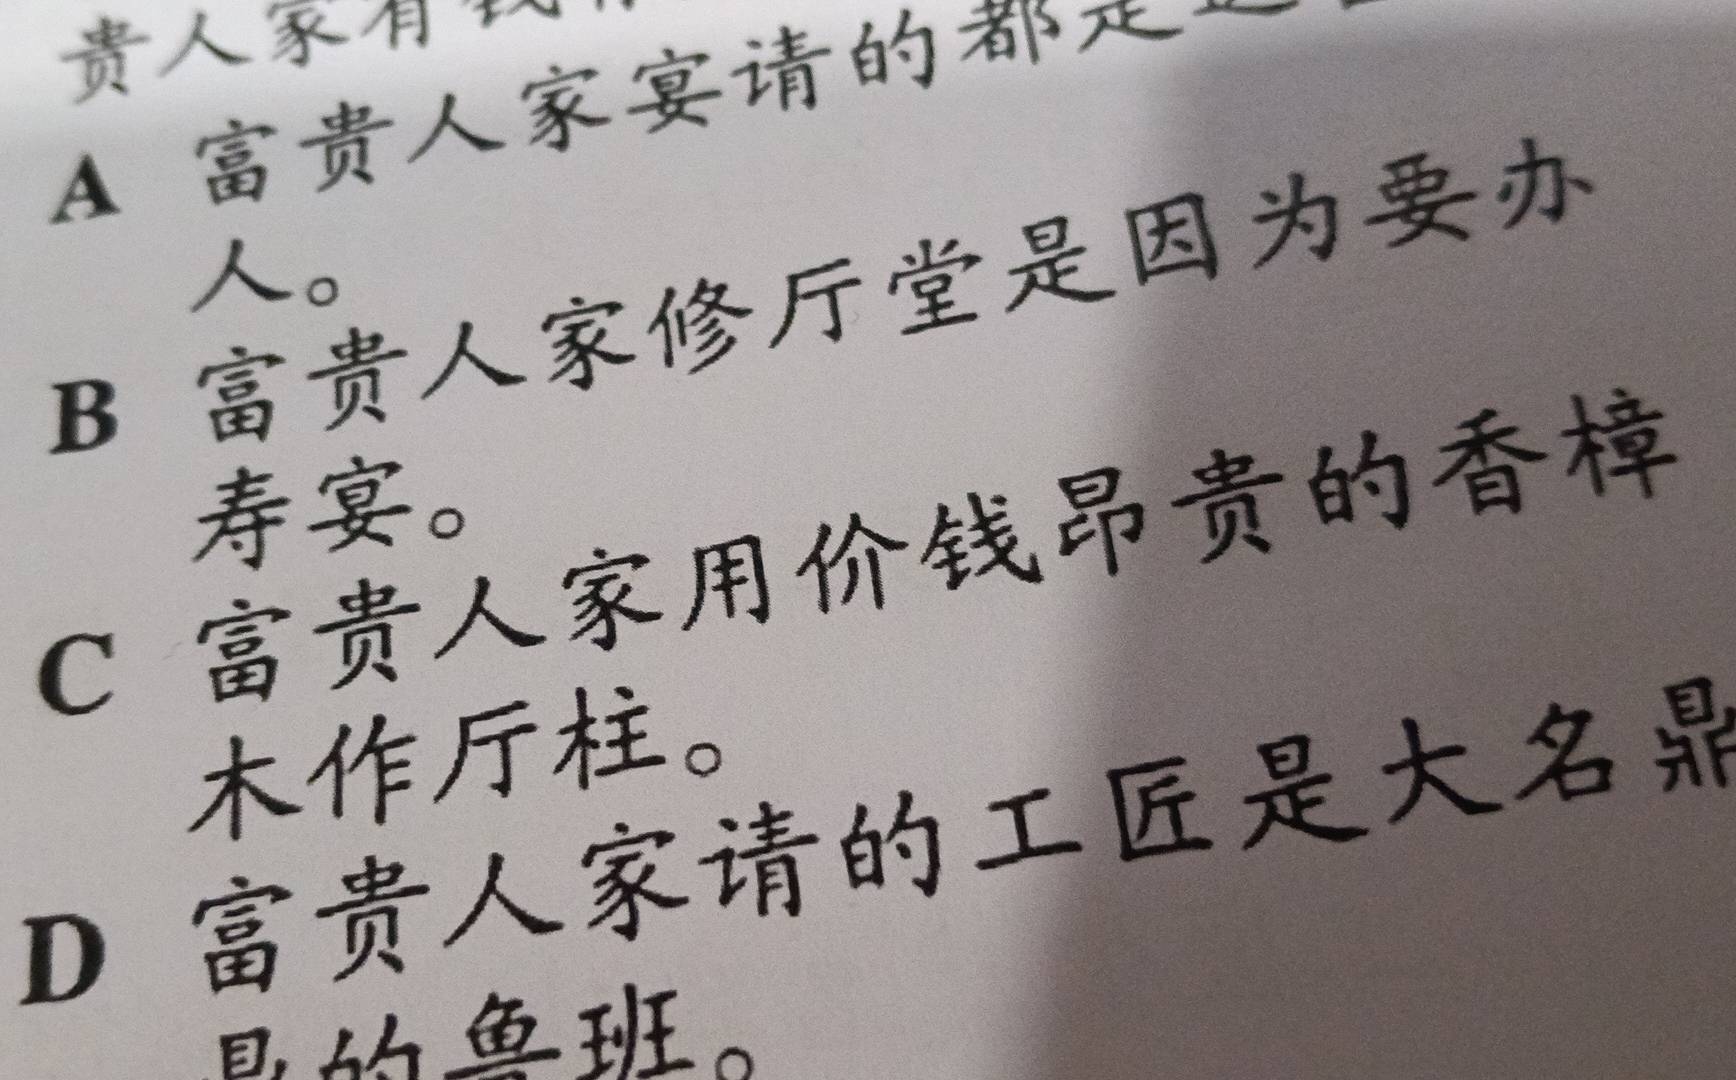 贵人家有钱
A 富贵人家宴请的都是达
人。
B 富贵人家修厅堂是因为要办
寿宴。
C 富贵人家用价钱昂贵的香樟
木作厅柱。
D 富贵人家请的工匠是大名鼎
鼎的鲁班。